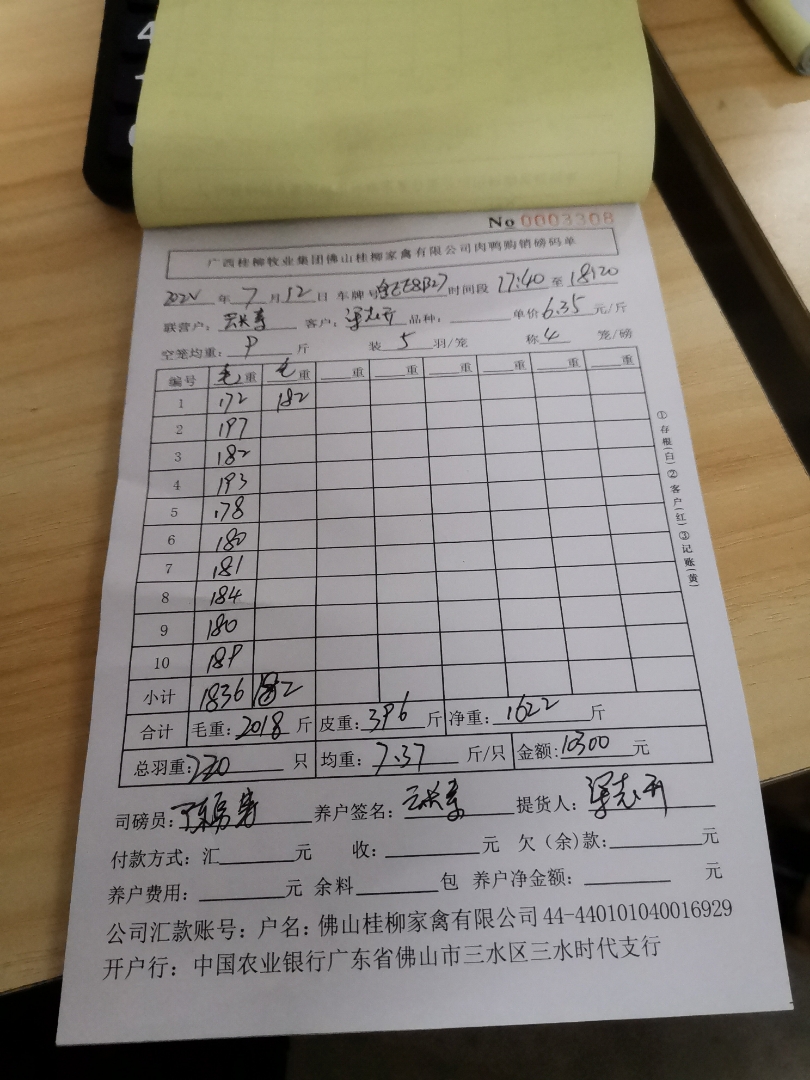 4
No 0003308
广西桂柳牧业集团佛山桂柳家禽有限公司肉鸭购销磅码单
2024 年 7 月 12 日 车牌号 时间段 17:40 至 18:20
联营户： 客户：梁志开 品种： 单价 6.35 元/斤
空笼均重： 9 斤 装 5 羽/笼 称 4 笼/磅
编号 毛重 毛重 重 重 重 重 重 重
1 172 182
2 197
3 182
4 193
5 178
6 180
7 181
8 184
9 180
10 189
小计 1836 182
合计 毛重：2018 斤 皮重：396 斤 净重：1622 斤
总羽重：220 只 均重：7.37 斤/只 金额：10300 元
司磅员： 养户签名： 提货人：梁志开
付款方式：汇 元 收： 元 欠（余）款： 元
养户费用： 元 余料 包 养户净金额： 元
公司汇款账号：户名：佛山桂柳家禽有限公司 44-440101040016929
开户行：中国农业银行广东省佛山市三水区三水时代支行
①存根(白)②客户(红)③记账(黄)